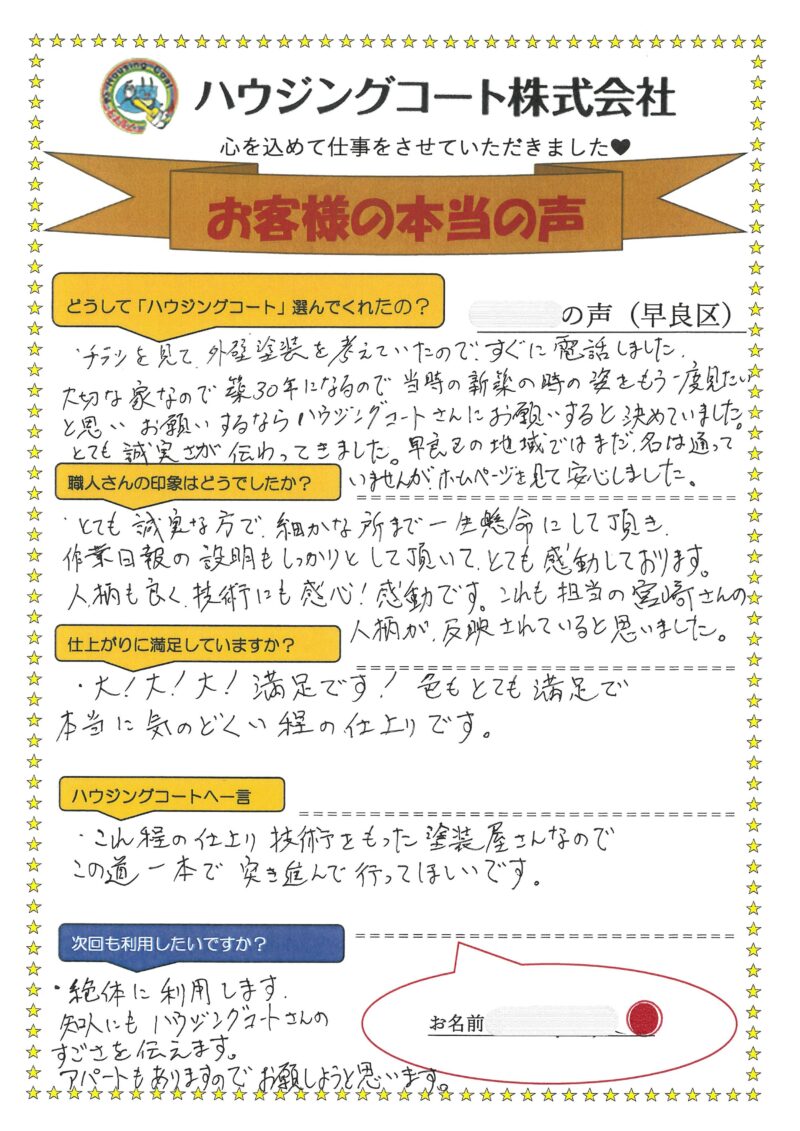 ハウジングコート株式会社
心を込めて仕事をさせていただきました♥
お客様の本当の声
どうして「ハウジングコート」選んでくれたの？
の声（早良区）
・チラシを見て、外壁塗装を考えていたので、すぐに電話しました。
大切な家なので築30年になるので当時の新築の時の姿をもう一度見たい
と思い、お願いするならハウジングコートさんにお願いすると決めていました。
とても誠実さが伝わってきました。早良区の地域ではまだ、名は通って
いませんが、ホームページを見て安心しました。
職人さんの印象はどうでしたか？
・とても誠実な方で、細かな所まで一生懸命にして頂き、
作業日報の説明もしっかりとして頂いて、とても感動しております。
人柄も良く、技術にも感心！感動です。これも担当の宮崎さんの
人柄が、反映されていると思いました。
仕上がりに満足していますか？
・大！大！大！満足です！色もとても満足で
本当に気のどくい程の仕上りです。
ハウジングコートへ一言
・これ程の仕上り技術をもった塗装屋さんなので
この道一本で突き進んで行ってほしいです。
次回も利用したいですか？
・絶体に利用します。
知人にもハウジングコートさんの
すごさを伝えます。
アパートもありますのでお願しようと思います。
お名前